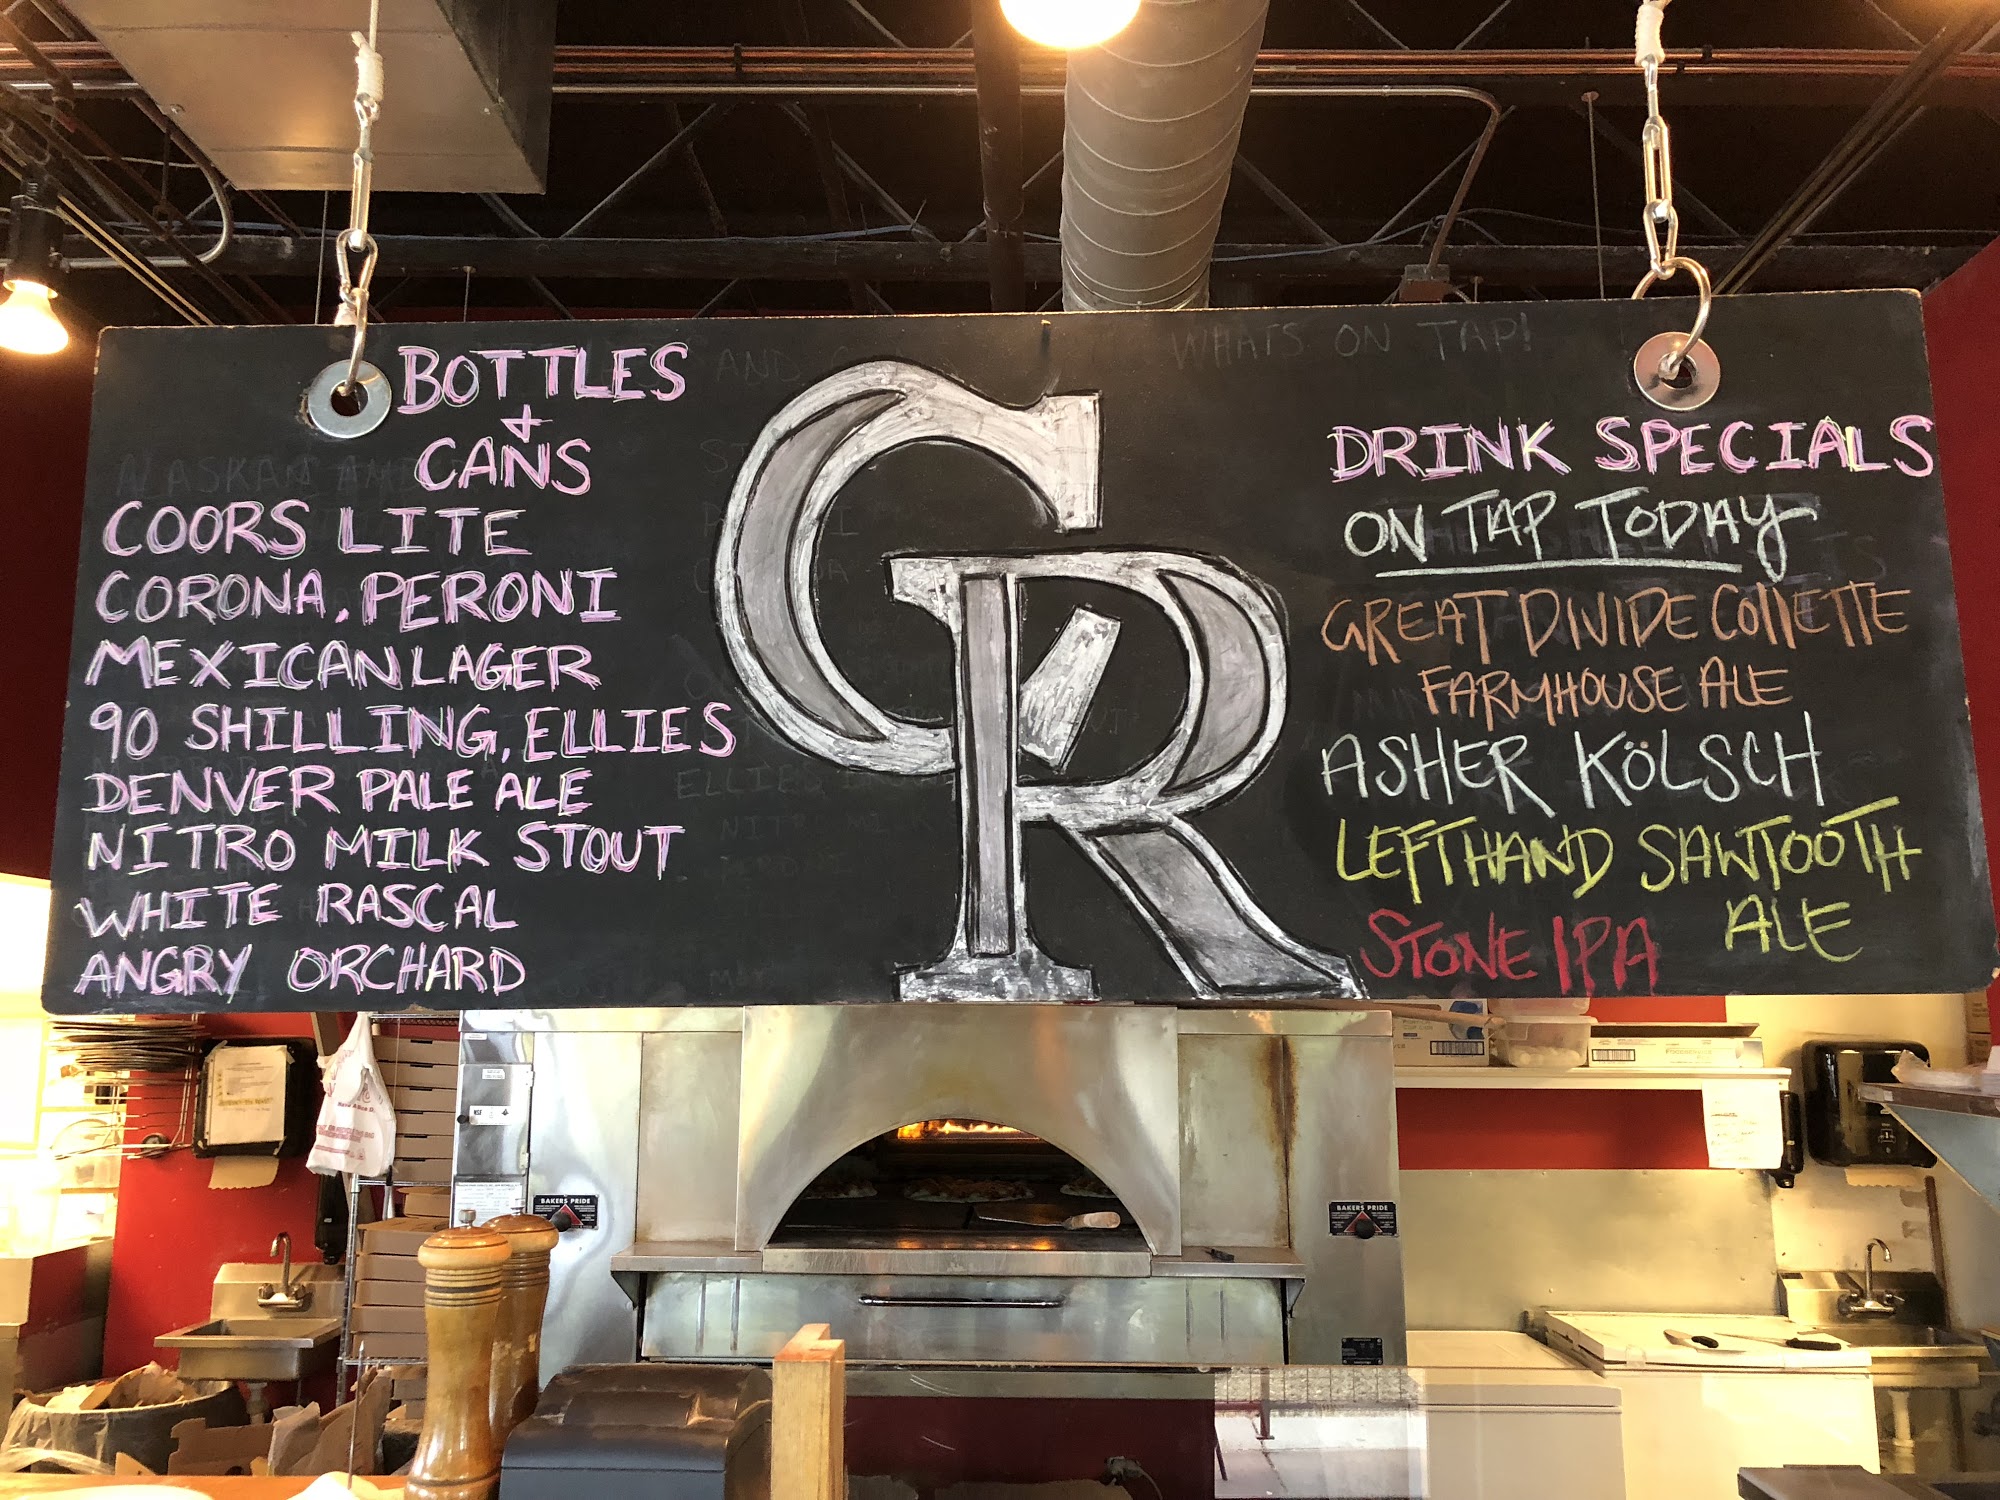 WHATS ON TAP!
BOTTLES
+
CANS
COORS LITE
CORONA, PERONI
MEXICAN LAGER
90 SHILLING, ELLIES
DENVER PALE ALE
NITRO MILK STOUT
WHITE RASCAL
ANGRY ORCHARD
CR
DRINK SPECIALS
ON TAP TODAY
GREAT DIVIDE COllETTE
FARMHOUSE ALE
ASHER KÖLSCH
LEFTHAND SAWTOOTH
ALE
STONE IPA
BAKERS PRIDE
BAKERS PRIDE